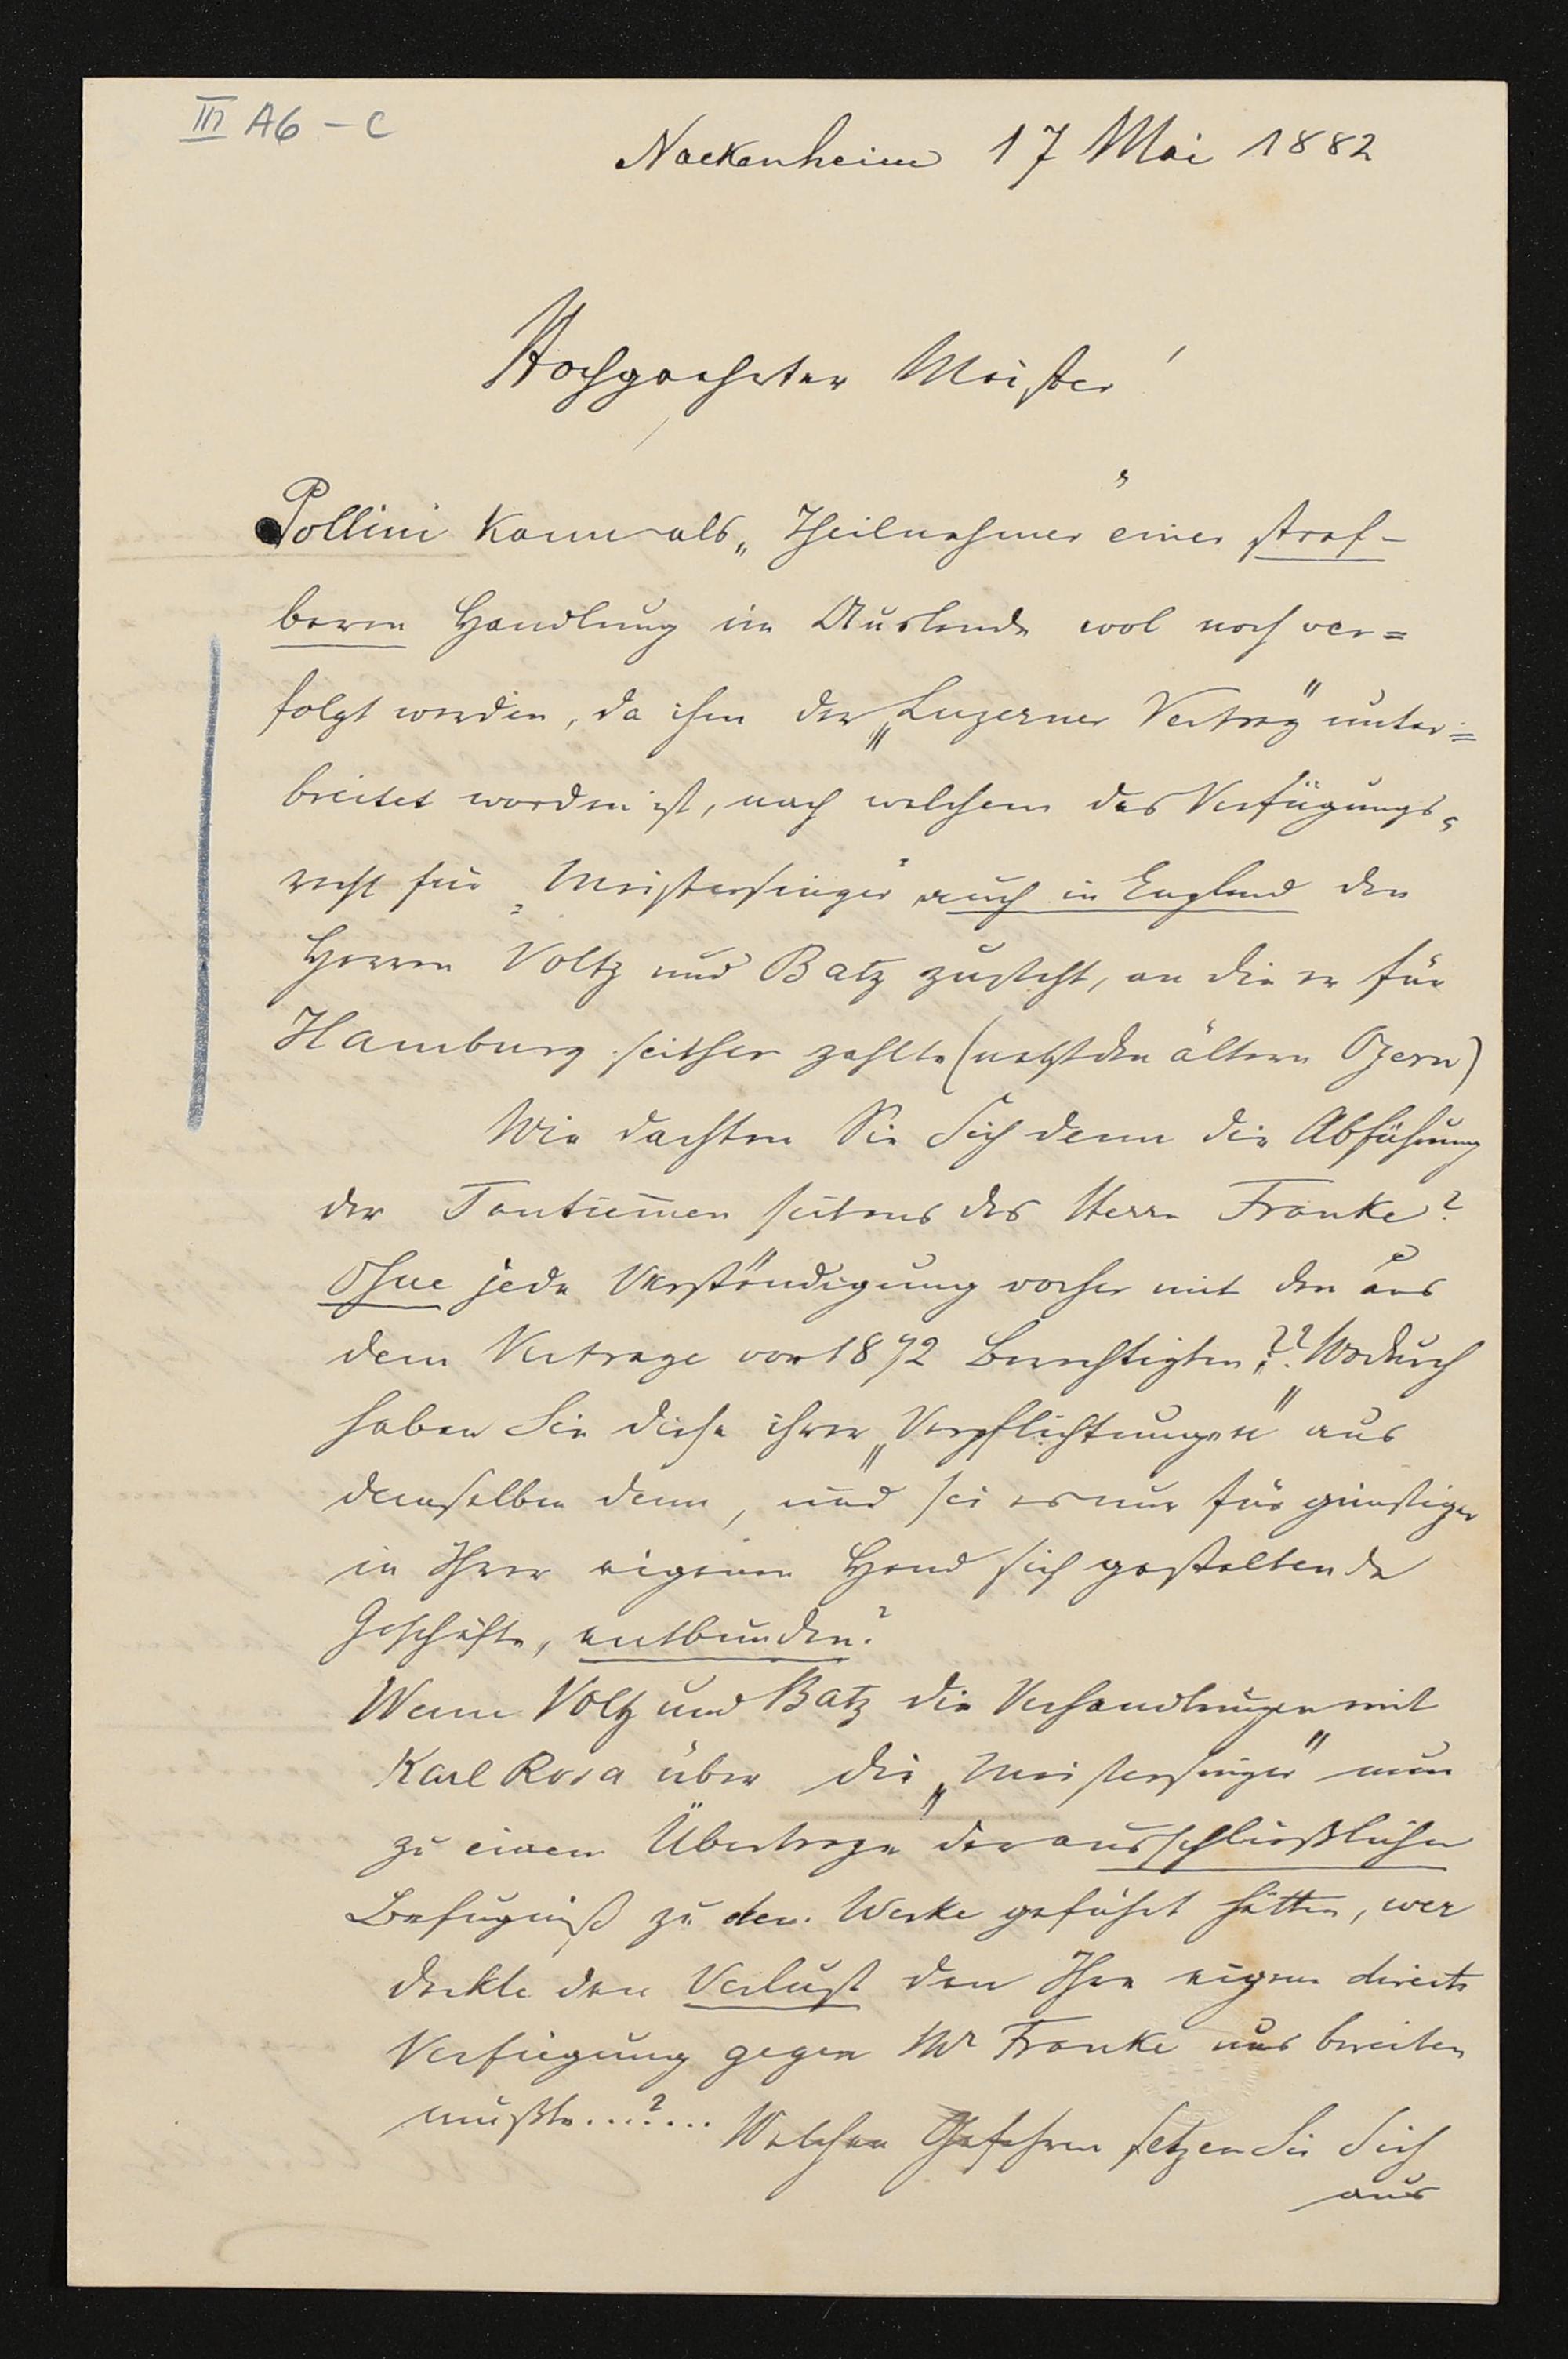 III A6 – C
Nackenheim 17 Mai 1882
Hochgeehrter Meister!
Pollini kann als „Theilnehmer" einer straf-
baren Handlung im Auslande wol noch ver=
folgt werden, da ihm der „Luzerner Vertrag" unter=
breitet worden ist, nach welchem das Verfügungs=
recht für „Meistersinger" auch in England den
Herren Voltz und Batz zusteht, an die er für
Hamburg seither zahlte (nebst den ältern Opern)
Wie dachten Sie Sich denn die Abführung
der Tantiemen seitens des Herrn Franke?
Ohne jede Verständigung vorher mit den aus
dem Vertrage von 1872 Berechtigten?? Wodurch
haben Sie diese ihrer „Verpflichtungen" aus
demselben denn, und sei es nur für günstiger
in Ihrer eigenen Hand sich gestaltende
Geschäfte, entbunden?
Wenn Voltz und Batz die Verhandlungen mit
Karl Rosa über die „Meistersinger" nun
zu einem Übertrage der ausschließlichen
Befugniß zu dem Werke geführt hätten, wer
deckte den Verlust den Ihre eigene directe
Verfügung gegen Mr Franke uns bereiten
mußte....?... Welchen Gefahren setzen Sie Sich
aus